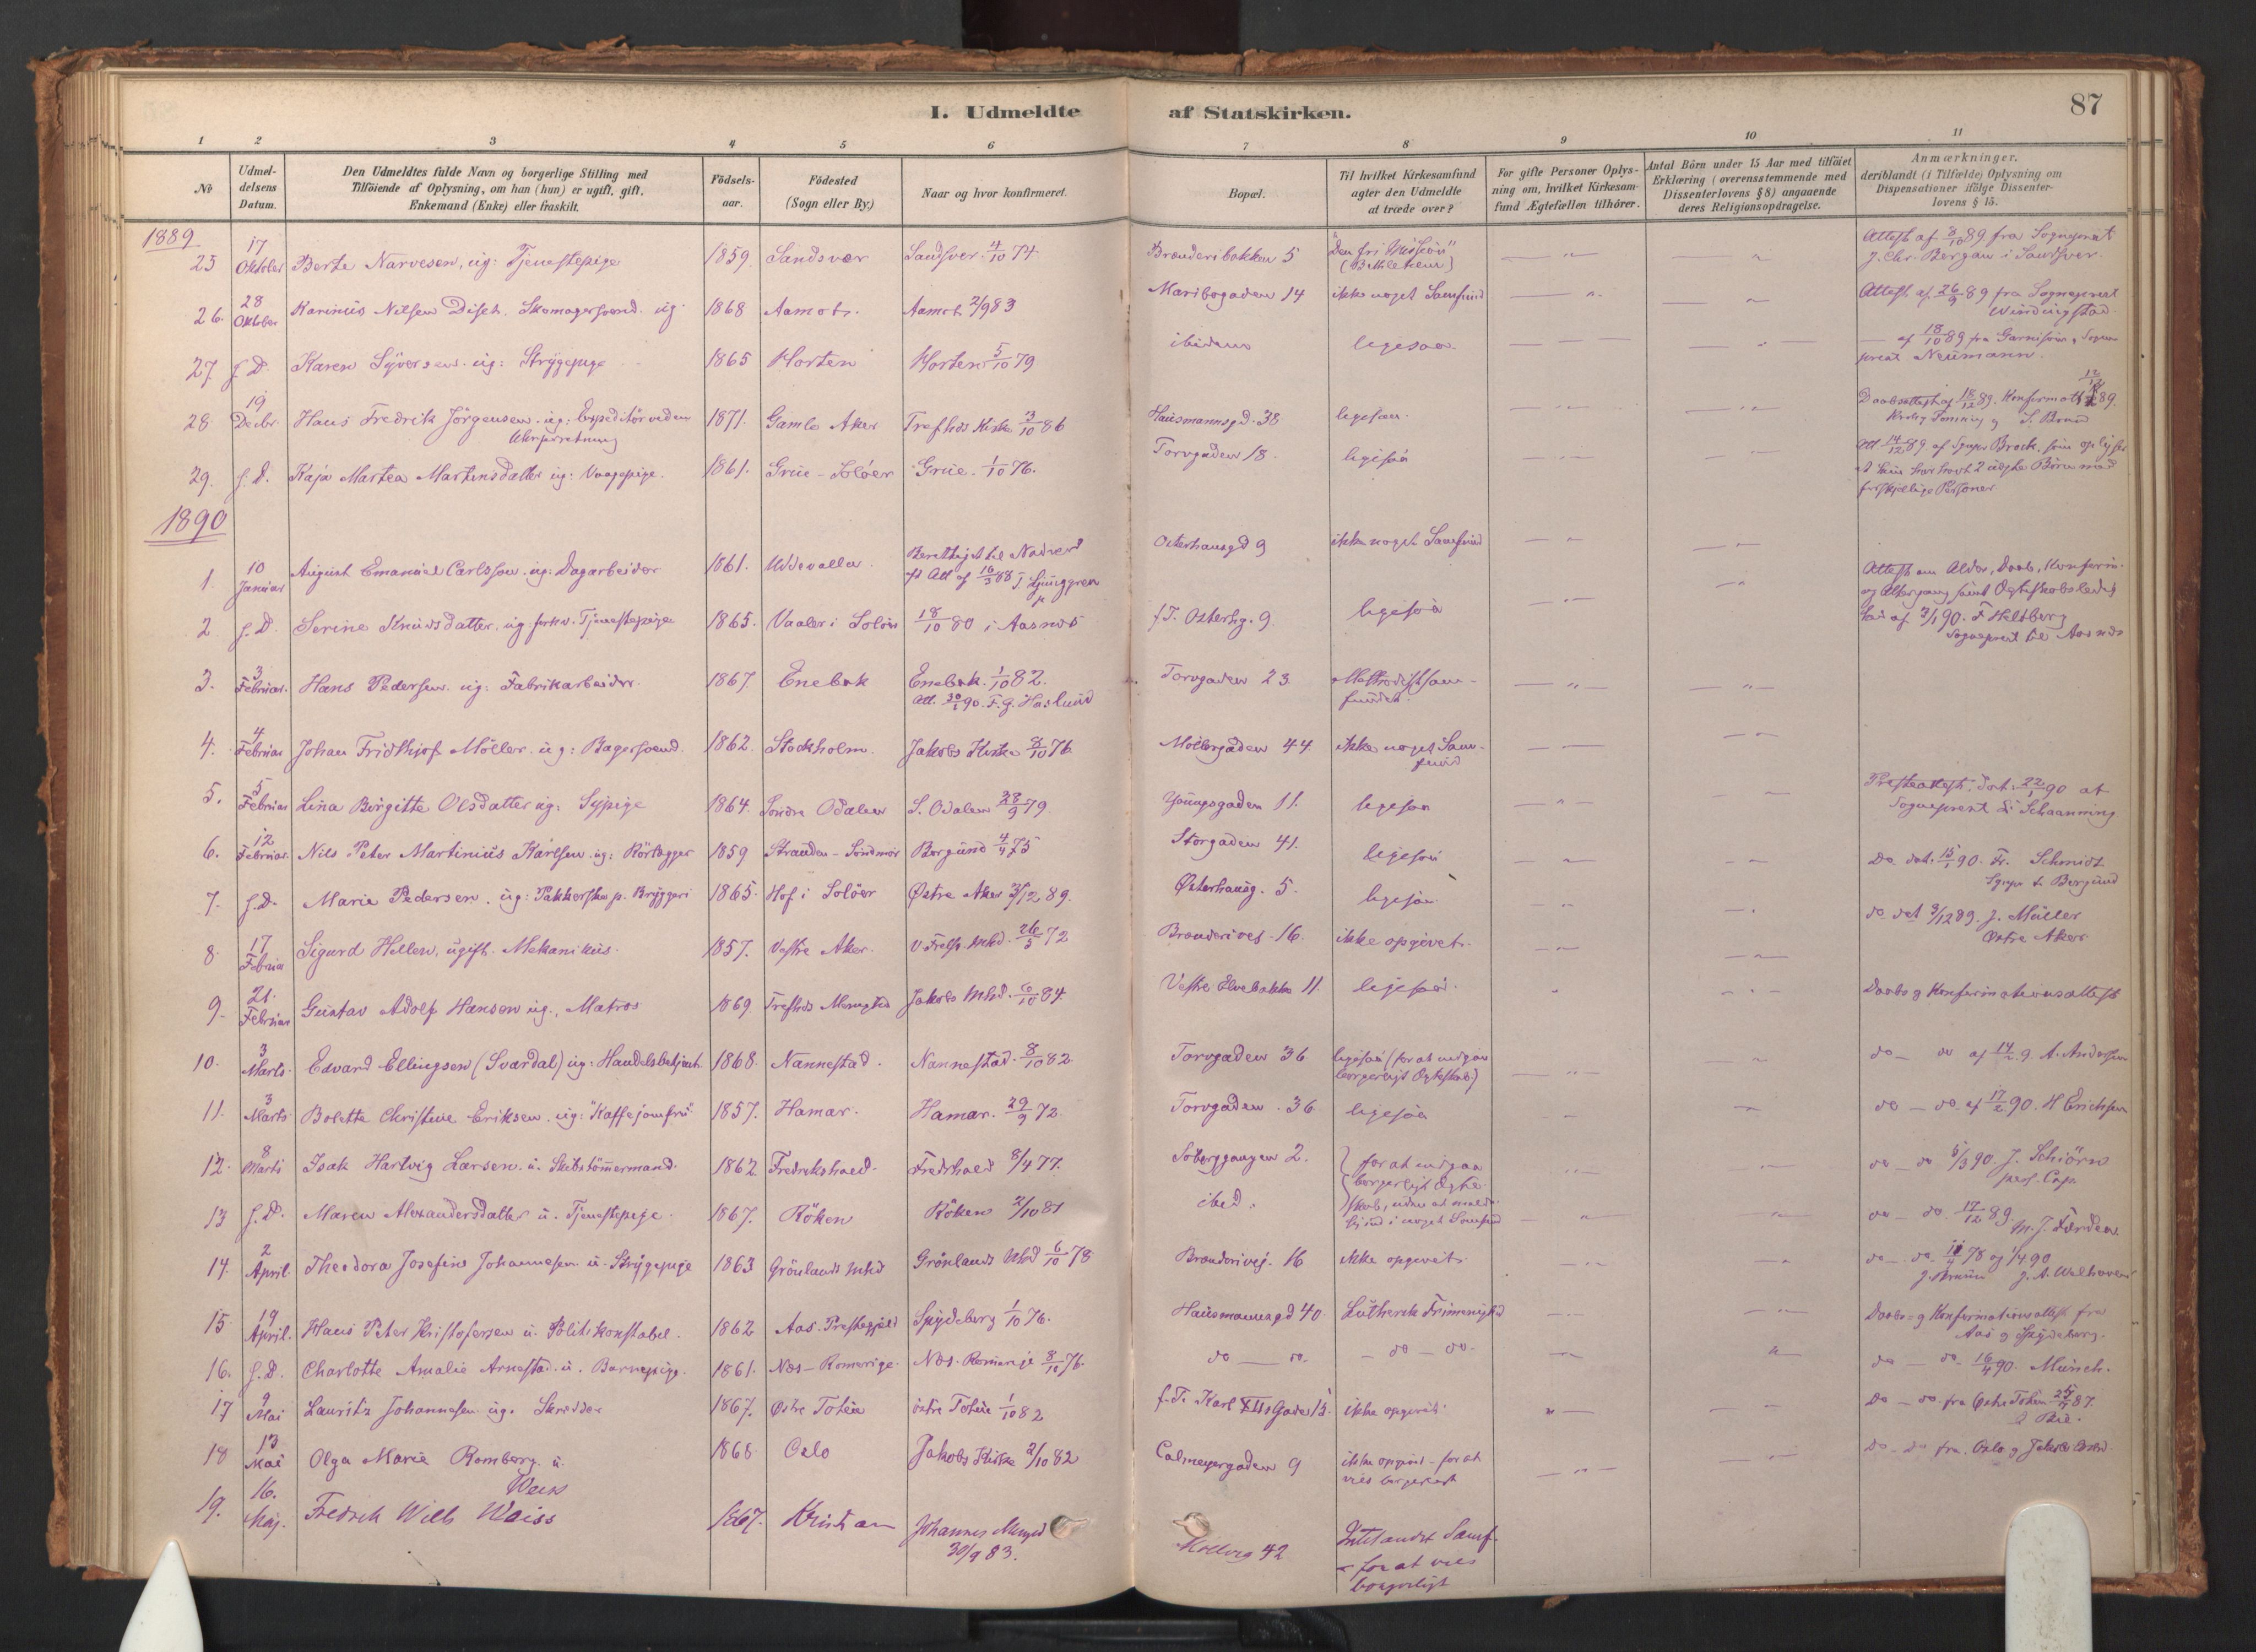 I. Udmeldte af Statskirken.
87
1 2 3 4 5 6 7 8 9 10 11
No
Udmeldelsens Datum.
Den Udmeldtes fulde Navn og borgerlige Stilling med
Tilføiende af Oplysning, om han (hun) er ugift, gift,
Enkemand (Enke) eller fraskilt.
Fødselsaar.
Fødested
(Sogn eller By.)
Naar og hvor konfirmeret.
Bopæl.
Til hvilket Kirkesamfund
agter den Udmeldte
at træde over?
For gifte Personer Oplysning
om, hvilket Kirkesamfund
Ægtefællen tilhører.
Antal Børn under 15 Aar med tilføiet
Erklæring (overensstemmende med
Dissenterlovens § 8) angaaende
deres Religionsopdragelse.
Anmærkninger,
deriblandt (i Tilfælde) Oplysning om
Dispensationer ifølge Dissenterlovens § 15.
1889
25 17 Oktober Berte Narvesen, ug: Tjenestepige 1859 Sandsvær Sandsver 4/10 74 Brænderibakken 5 "Den fri Mission" (Bethlehem) Attest af 8/10 89 fra Sogneprest J. Chr. Bergan i Sandsver.
26. 28 Oktober Karinius Nilsen Diseh. Skomagersvend ug 1868 Aamot Aamot 2/9 83 Maribogaden 14 ikke noget Samfund Attest af 26/9 89 fra Sogneprest
27. s.D. Karen Syversen ug: Strygepige 1865 Horten Horten 5/10 79 ibidem ligesaa af 18/10 89 fra Garnisons Sogneprest Neumann.
28 19 Decbr. Hans Fredrik Jörgensen ug: Expeditör ved en Uhrforretning 1871. Gamle Aker Trefhds Kirke 3/10 86 Hausmannsgd. 38 ligesaa
29. s.D. Kaja Martea Martinsdatter ug: Vaagepige. 1861. Grue-Solöer Grue. 1/10 76. Torvgaden 18. ligesaa Att 14/12 89 af Sgnpr Brock, som oplyser at hun har havt 2 uægte Börn med forskjellige Personer
1890
1. 10 Januar August Emanuel Carlsson ug: Dagarbeider 1861. Uddevalla. Berettiget til Nadverd Att af 16/3 88 Ljunggren Osterhausgd 9 ikke noget Samfund
2 s.D Serine Knudsdatter, ug forhv. Tjenestepige 1865. Vaaler i Solöer 18/10 80 i Aasnes f.T. Osterhg. 9. ligesaa Attest om Alder, Daab, Konfirm. og Altergang samt Ægteskabsledighed af 3/1 90. F Heltberg Sogneprest til Aasnes
3. 3 Februar. Hans Pedersen ug: Fabrikarbeider. 1867 Enebak Enebak. 1/10 82. Att. 30/1 90. F. G. Haslund Torvgaden 23 Methodistsamfundet.
4. 4 Februar Johan Fridthjof Möller ug: Bagersvend. 1862. Stockholm. Jakobs Kirke 8/10 76 Möllergaden 44 ikke noget Samfund
5. 5 Februar Lina Birgitte Olsdatter ug: Sypige 1864. Söndre Odalen S. Odalen 28/9 79. Youngsgaden 11. ligesaa Presteattest. dat. 22/1 90 af Sogneprest Schaanning
6. 12 Februar. Nils Peter Martinius Karlsen ug: Rörlægger 1859 Stranden-Söndmör Borgund 4/4 75 Storgaden 41. ligesaa Do dat. 15/1 90. Fr. Schmidt Sgnpr t. Borgund
7. s.D. Marie Pedersen. ug: Pakkerske p. Bryggeri 1865. Hof i Solöer Østre Aker 3/12 89. Østerhausg. 5. ligesaa do dat 3/12 89. J. Müller Østre Aker
8. 17 Februar Sigurd Hellen, ugift. Mekanikus. 1857. Vestre Aker. V. Frelst. Mhd. 26/5 72 Brænderivej. 16. ikke opgivet.
9. 21. Februar Gustav Adolf Hansen ug., Matros 1869 Trefhds Menighed Jakobs Mhd. 6/10 84. Vestre Elvebakke 11. ligesaa. Daabs og Konfirmationsattest
10. 3 Marts. Edvard Ellingsen (Sværdal) ug: Handelsbetjent. 1868. Nannestad. Nannestad. 8/10 82. Torvgaden 36 ligesaa (for at indgaa borgerligt Ægteskab) do do af 14/2 9. A. Andersen
11. 3 Marts Bolette Christine Eriksen. ug: "Kaffejomfru" 1857. Hamar. Hamar. 29/9 72. Torvgaden. 36 ligesaa do do af 17/2 90. H Erichsen
12. 8 Marts Isak Hartvig Larsen. u. Skibstömmermand. 1862 Fredrikshald. Fredrhald 8/4 77. Soberggangen 2. for at indgaa borgerligt Ægteskab, uden at melde sig ind i noget Samfund do do 5/3 90 J. Schiörn pers. Cap.
13 s.D. Maren Alexandersdatter u. Tjenestepige. 1867. Röken Röken 2/10 81 ibid. do do. 17/12 89
14. 2 April. Theodora Josefine Johannesen. u. Strygepige 1863 Grönlands Mhd Grönlands Mhd 6/10 78 Brænderivej. 16 ikke opgivet.
15 19 April. Hans Peter Kristofersen u. Politikonstabel. 1862 Aas. Prestegjeld Spydeberg 1/10 76. Hausmannsgd 40 Luthersk Frimenighed Daabs- og Konfirmationsattest fra Aas og Spydeberg.
16. s.D. Charlotte Amalie Arnestad. u. Barnepige. 1861. Næs-Romerige. Næs. Romerije 8/10 76. do do. do do. do do 16/4 90. Münch.
17 9 Mai Lauritz Johannesen ug. Skrædder 1867. Østre Toten östre Toten 1/10 82 f.T. Karl XIIs Gade 15. ikke opgivet do do. fra Østre Toten
18 13 Mai Olga Marie Romberg. u. 1868 Oslo Jakobs Kirke 2/10 82 Calmeyergaden 9 ikke opgivet - for at vies borgerligt do do fra. Oslo og Jakobs
19. 16. Maj. Fredrik Wilh Weiss 1867. Kristian Johannes Menged 30/9 83. 42 Intet andet Samf. for at vies borgerligt